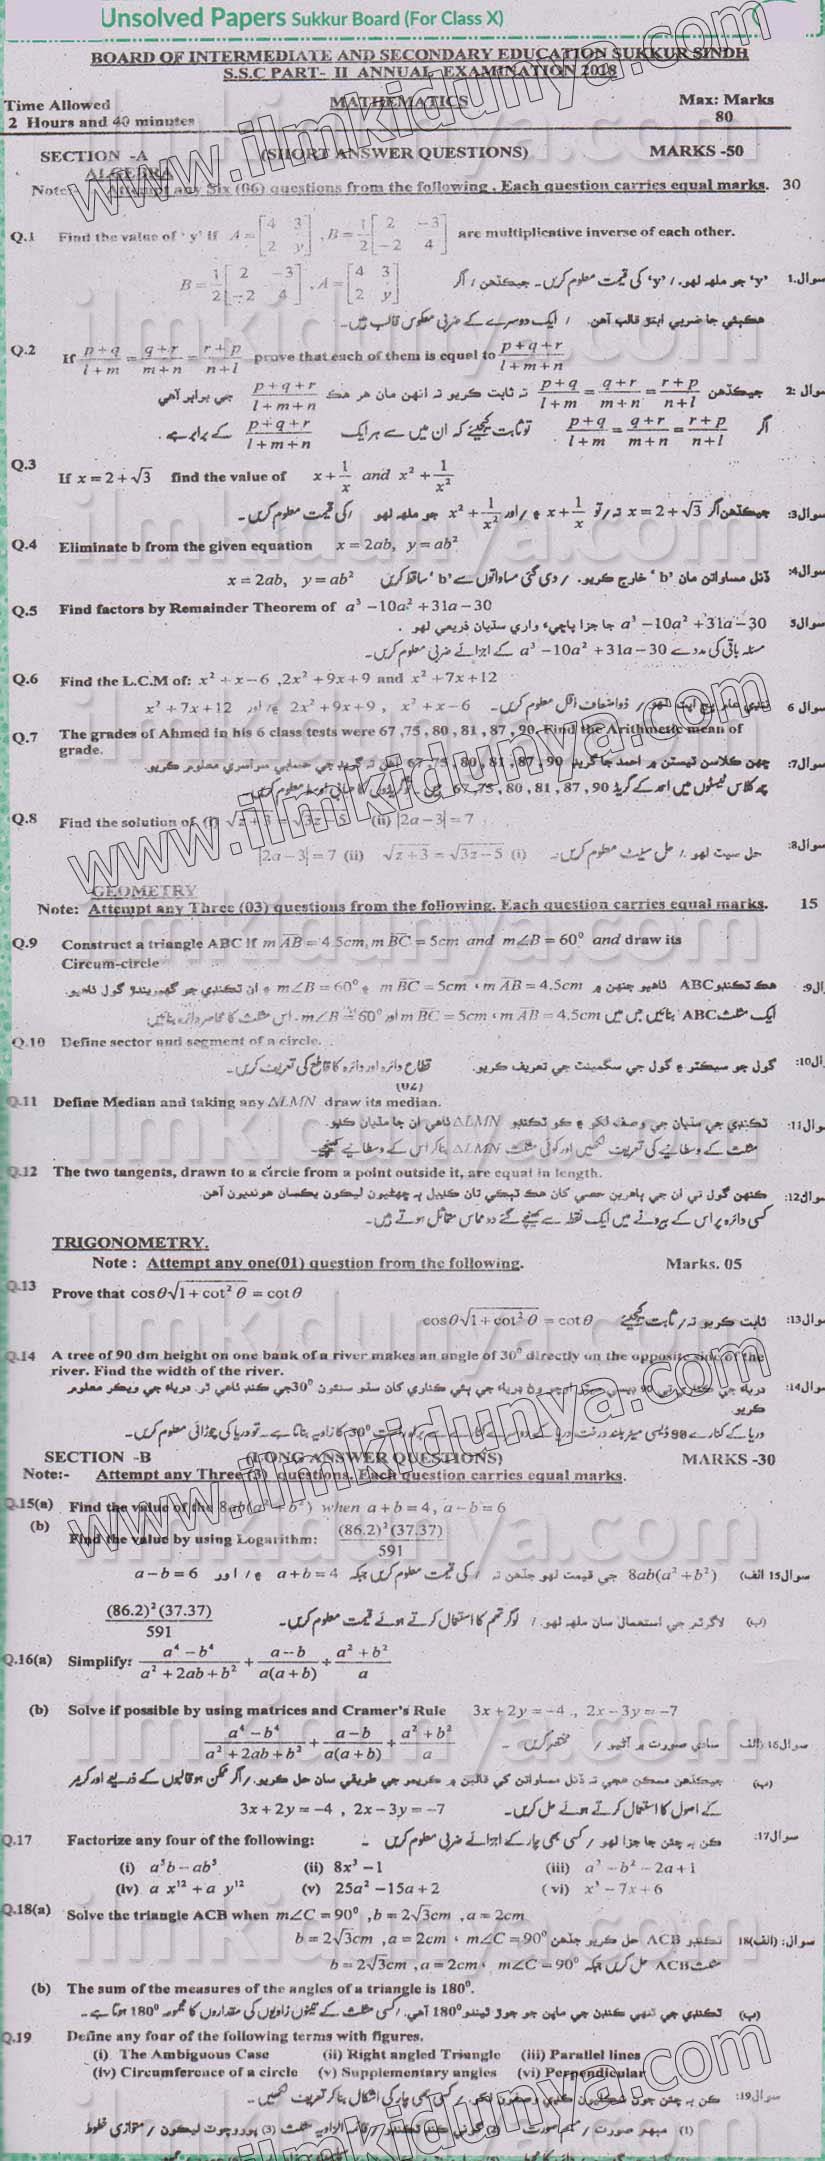 Unsolved Papers Sukkur Board (For Class X)
BOARD OF INTERMEDIATE AND SECONDARY EDUCATION SUKKUR SINDH
S.S.C PART- II ANNUAL EXAMINATION 2018
Time Allowed MATHEMATICS Max: Marks
2 Hours and 40 minutes 80
SECTION -A (SHORT ANSWER QUESTIONS) MARKS -50
ALGEBRA
Note: Attempt any Six (06) questions from the following . Each question carries equal marks. 30
Q.1 Find the value of ' y' if A=[4 3; 2 y] , B=1/2[2 -3; -2 4] are multiplicative inverse of each other.
B=1/2[2 -3; -2 4] , A=[4 3; 2 y] سوال.1 'y' جو ملهه لهو. / 'y' کی قیمت معلوم کریں۔ جيڪڏهن / اگر
هڪٻئي جا ضربي ابتڙ قالب آهن. / ایک دوسرے کے ضربی معکوس قالب ہیں۔
Q.2 If (p+q)/(l+m) = (q+r)/(m+n) = (r+p)/(n+l) prove that each of them is equal to (p+q+r)/(l+m+n)
سوال :2 جيڪڏهن (p+q)/(l+m) = (q+r)/(m+n) = (r+p)/(n+l) ته ثابت ڪريو ته انهن مان هر هڪ (p+q+r)/(l+m+n) جي برابر آهي
اگر (p+q)/(l+m) = (q+r)/(m+n) = (r+p)/(n+l) تو ثابت کیجیئے کہ ان میں سے ہر ایک (p+q+r)/(l+m+n) کے برابر ہے۔
Q.3 If x = 2+√3 find the value of x+1/x and x²+1/x²
سوال3: جيڪڏهن/اگر x = 2+√3 ته/تو x+1/x ۽/اور x²+1/x² جو ملهه لهو /کی قیمت معلوم کریں۔
Q.4 Eliminate b from the given equation x = 2ab, y = ab²
سوال4: ڏنل مساواتن مان 'b' خارج ڪريو. / دی گئی مساواتوں سے 'b' ساقط کریں x = 2ab, y = ab²
Q.5 Find factors by Remainder Theorem of a³ −10a² +31a −30
سوال5 a³ −10a² +31a −30 جا جزا ٻاقيءَ واري سڌيان ذريعي لهو .
مسئلہ باقی کی مدد سے a³ −10a² +31a −30 کے اجزائے ضربی معلوم کریں۔
Q.6 Find the L.C.M of: x² + x −6 ,2x² +9x +9 and x² +7x +12
سوال 6 ذواضعاف اقل معلوم کریں۔ x² + x −6 , 2x² +9x +9 ۽/ اور x² +7x +12
Q.7 The grades of Ahmed in his 6 class tests were 67 ,75 , 80 , 81 , 87 , 90. Find the Arithmetic mean of
grade.
سوال7: ڇهن ڪلاسن ٽيسٽن ۾ احمد جا گريڊ 67 ,75 , 80 , 81 , 87 , 90 معلوم ڪريو.
چھ کلاس ٹیسٹوں میں احمد کے گریڈ 67 ,75 , 80 , 81 , 87 , 90 معلوم کریں۔
Q.8 Find the solution of (i) √z+3 = √3z−5 (ii) |2a−3| = 7
سوال8: حل سيٽ لهو ./ حل سیٹ معلوم کریں۔ (i) √z+3 = √3z−5 (ii) |2a−3| = 7
GEOMETRY
Note: Attempt any Three (03) questions from the following. Each question carries equal marks. 15
Q.9 Construct a triangle ABC if mAB = 4.5cm, mBC = 5cm and m∠B = 60⁰ and draw its
Circum-circle
هڪ ٽڪنڊو ABC ٺاهيو جنهن ۾ mAB = 4.5cm ، mBC = 5cm ۽ m∠B = 60⁰ ۽ ان ٽڪنڊي جو گهيريندڙ گول ٺاهيو.
ایک مثلث ABC بنائیں جس میں mAB = 4.5cm ، mBC = 5cm اور m∠B = 60⁰ ۔ اس مثلث کا محاصر دائرہ بنائیں
Q.10 Define sector and segment of a circle.
سوال10: گول جو سيڪٽر ۽ گول جي سگمينٽ جي تعريف ڪريو. قطاع دائرہ اور دائرہ کا قاطع کی تعریف کریں۔
(02)
Q.11 Define Median and taking any △LMN draw its median.
سوال11: ٽڪنڊي جي مڌيان جي وصف لکو ۽ ڪو ٽڪنڊو △LMN ٺاهي ان جا مڌيان ڪڍو.
مثلث کے وسطانیے کی تعریف لکھیں اور کوئی مثلث △LMN بنا کر اس کے وسطانیے کھینچیے۔
Q.12 The two tangents, drawn to a circle from a point outside it, are equal in length.
سوال12: ڪنهن گول تي ان جي ٻاهرين حصي کان هڪ ٽٻڪي تان ڪڍيل ٻه ڇهنديون ليڪون يڪسان هونديون آهن.
کسی دائرہ پر اس کے بیرونے میں ایک نقطہ سے کھینچے گئے دو مماس متماثل ہوتے ہیں۔
TRIGONOMETRY.
Note : Attempt any one(01) question from the following. Marks. 05
Q.13 Prove that cosθ√1+cot²θ = cotθ
سوال13: ثابت ڪريو ته/ ثابت کیجیئے cosθ√1+cot²θ = cotθ
Q.14 A tree of 90 dm height on one bank of a river makes an angle of 30⁰ directly on the opposite side of the
river. Find the width of the river.
ڪريو.
SECTION -B (LONG ANSWER QUESTIONS) MARKS -30
Note:- Attempt any Three (3) questions. Each question carries equal marks.
Q.15(a) Find the value of the 8ab(a² +b²) when a+b = 4, a−b = 6
(b) Find the value by using Logarithm: (86.2)²(37.37)/591
سوال15 الف) 8ab(a² +b²) جي قيمت لهو جڏهن ته / کی قیمت معلوم کریں جبکہ a+b = 4 ۽/ اور a−b = 6
(ب) لاگرٿم جي استعمال سان ملهه لهو. / لوگرتھم کا استعمال کرتے ہوئے قیمت معلوم کریں۔ (86.2)²(37.37)/591
Q.16(a) Simplify: (a⁴ −b⁴)/(a² +2ab+b²) + (a−b)/(a(a+b)) ÷ (a² +b²)/a
(b) Solve if possible by using matrices and Cramer's Rule 3x+2y = −4 , 2x−3y = −7
سوال16.(الف) سادي صورت ۾ آڻيو / مختصر کریں۔ (a⁴ −b⁴)/(a² +2ab+b²) ÷ (a−b)/(a(a+b)) ÷ (a² +b²)/a
(ب) جيڪڏهن ممڪن هجي ته ڏنل مساواتن کي قالبن ۾ ڪريمر جي طريقي سان حل ڪريو./ اگر ممکن ہو قالبوں کے ذریعے اور کریمر
کے اصول کا استعمال کرتے ہوئے حل کریں۔ 3x+2y = −4 , 2x−3y = −7
Q.17 Factorize any four of the following: سوال17: ڪن به چئن جا جزا لهو / کسی بھی چار کے اجزائے ضربی معلوم کریں
(i) a⁵b−ab⁵ (ii) 8x³ −1 (iii) a² −b² −2a+1
(iv) a x¹² + a y¹² (v) 25a² −15a+2 (vi) x³ −7x+6
Q.18(a) Solve the triangle ACB when m∠C = 90⁰ ,b = 2√3cm ,a = 2cm
سوال: (الف)18 ٽڪنڊو ACB حل ڪريو جڏهن m∠C = 90⁰ ، a = 2cm , b = 2√3cm
مثلث ACB حل کریں جبکہ m∠C = 90⁰ ، a = 2cm , b = 2√3cm
(b) The sum of the measures of the angles of a triangle is 180⁰.
(ب) ٽڪنڊي جي ٽنهي ڪنڊن جي ماپن جو جوڙ ٿيندو 180⁰ آهي. /کسی مثلث کے تینوں زاویوں کی مقداروں کا مجموعہ 180⁰ ہوتا ہے۔
Q.19 Define any four of the following terms with figures.
(i) The Ambiguous Case (ii) Right angled Triangle (iii) Parallel lines
(iv) Circumference of a circle (v) Supplementary angles (vi) Perpendicular
www.ilmkidunya.com